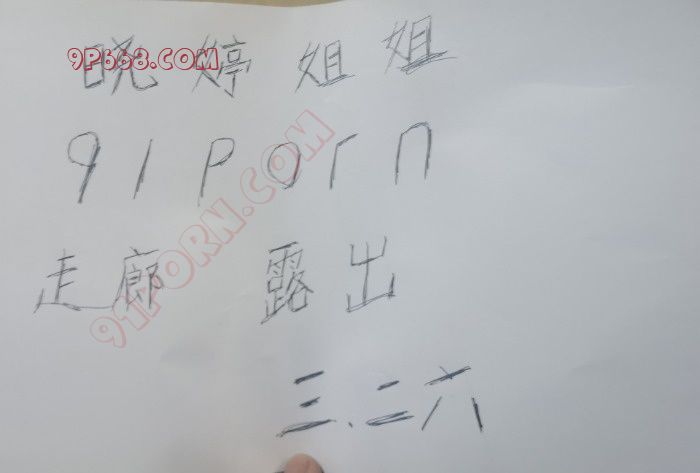 晚婷姐姐
9P668.COM
91porn
91PORN.COM
走廊 露出
三.二六